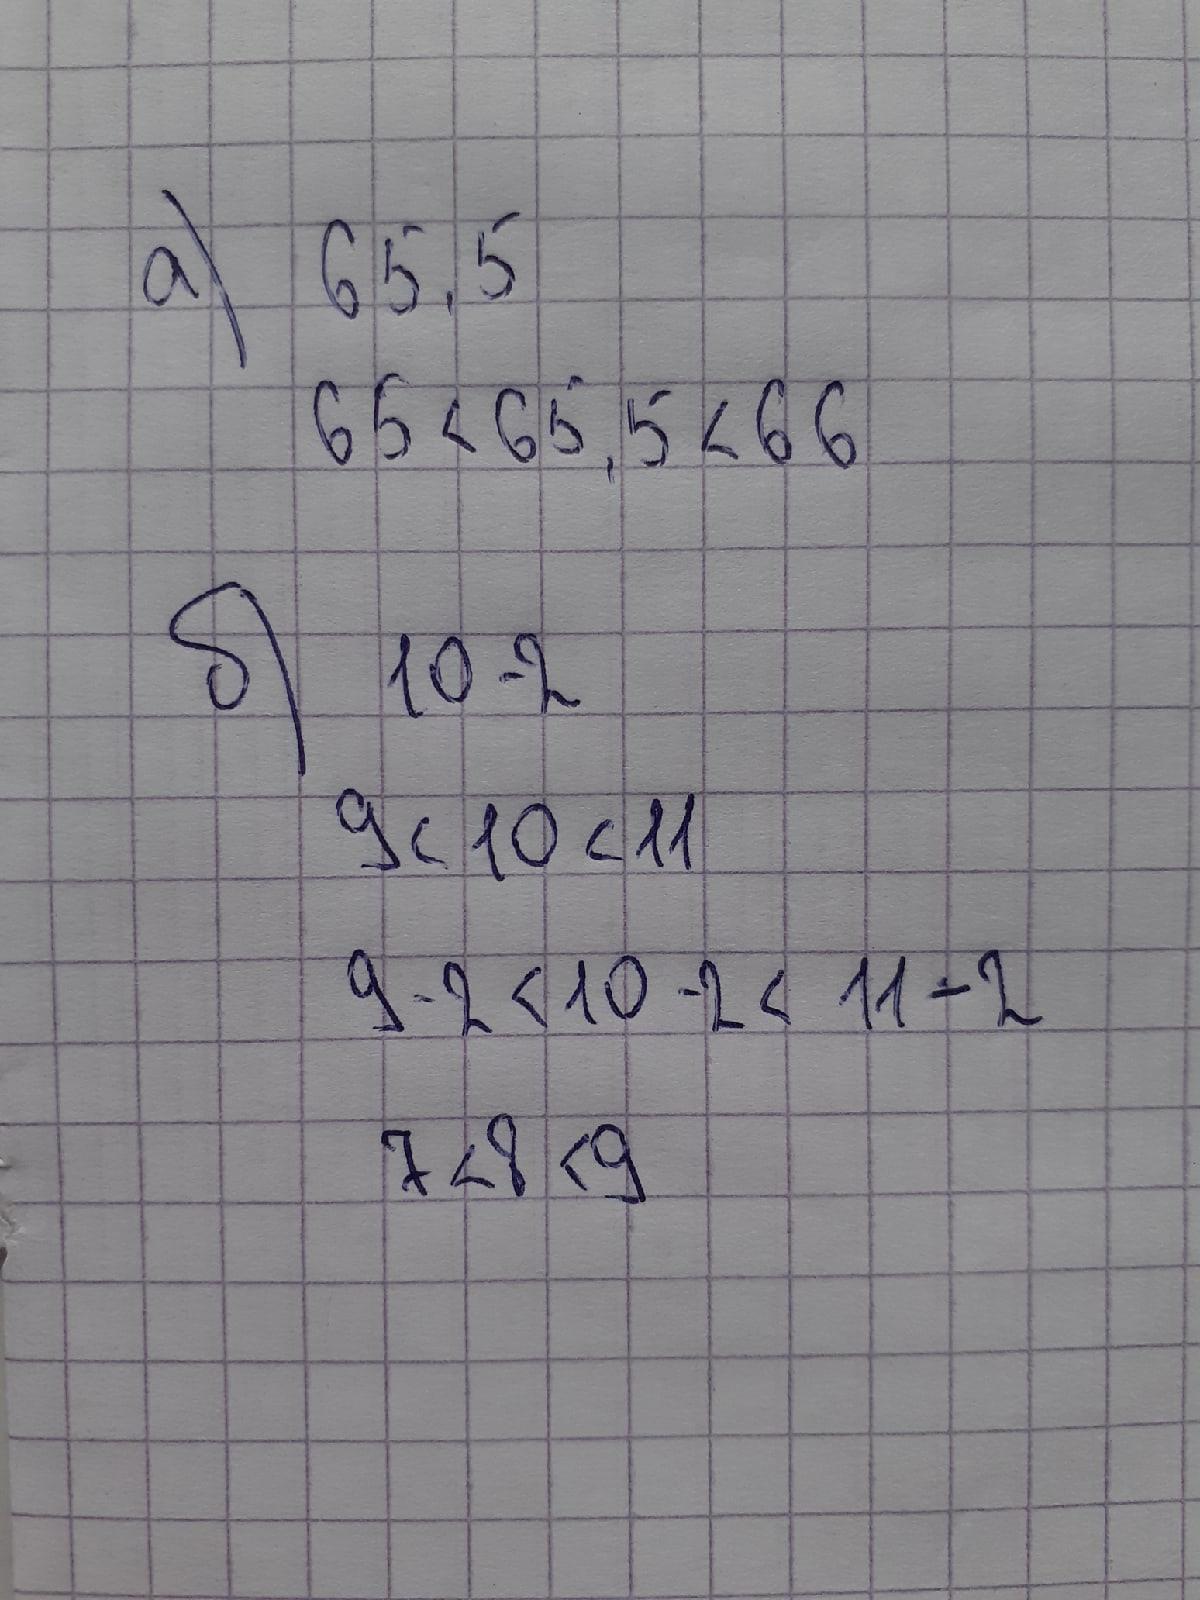 а) 65,5
65<65,5<66
б) 10-2
9<10<11
9-2<10-2<11-2
7<8<9